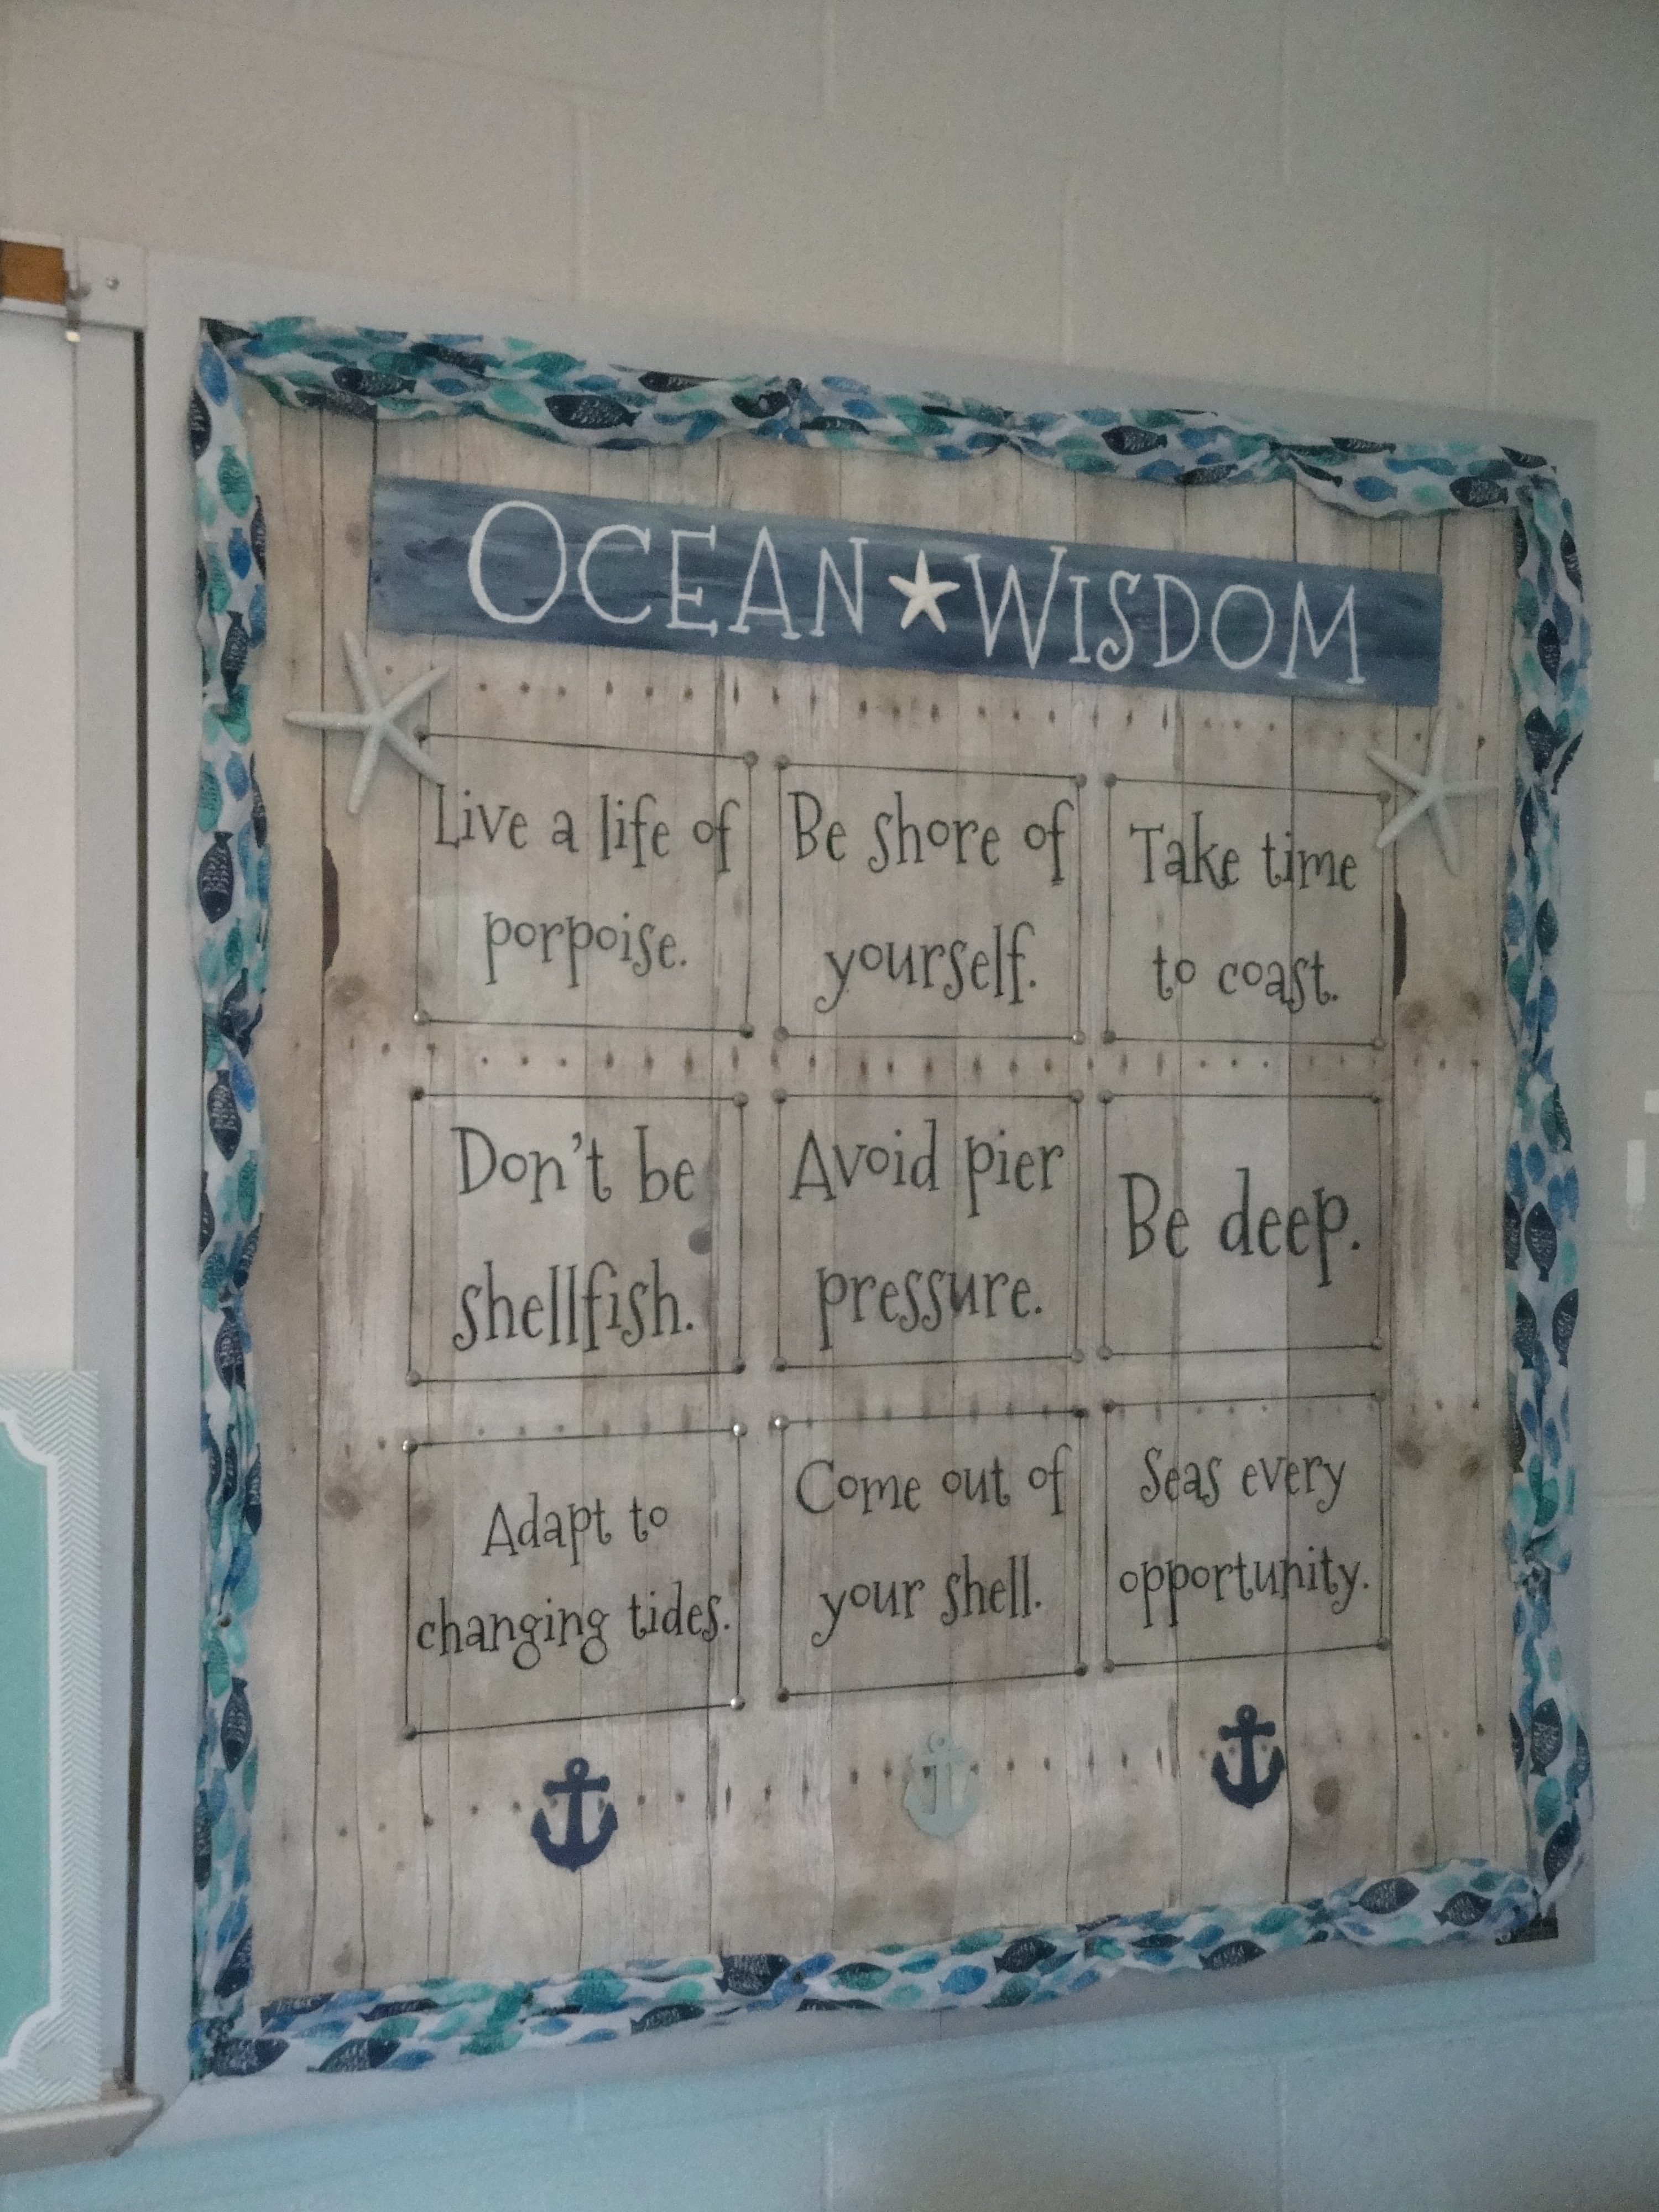 OCEAN WISDOM
Live a life of
porpoise.
Be shore of
yourself.
Take time
to coast.
Don't be
shellfish.
Avoid pier
pressure.
Be deep.
Adapt to
changing tides.
Come out of
your shell.
Seas every
opportunity.